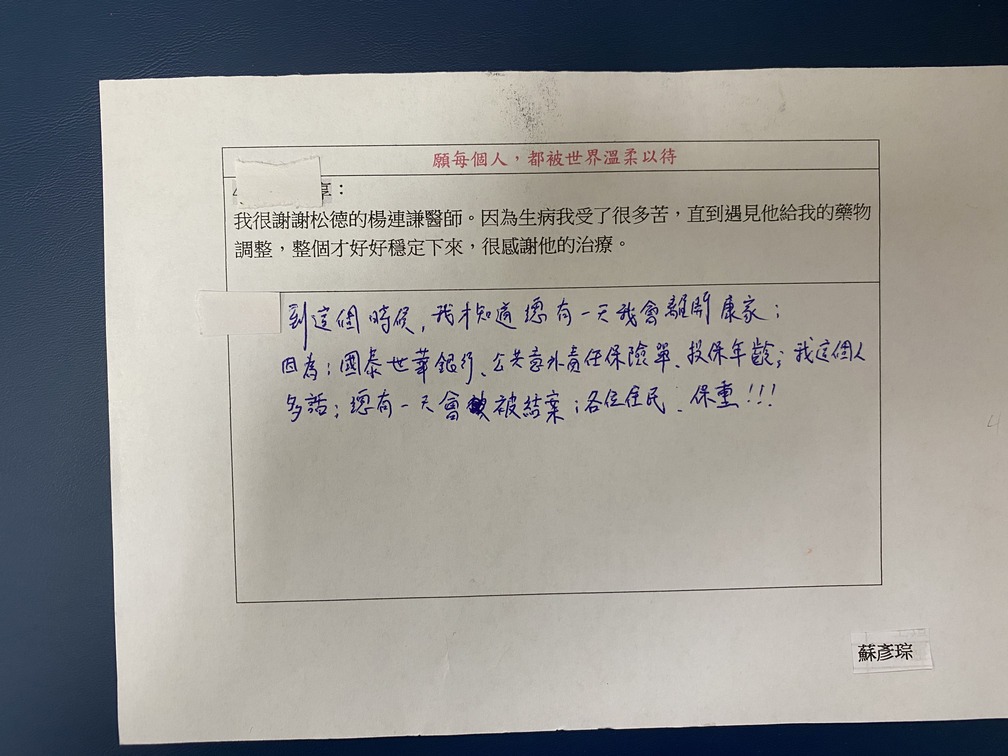 願每個人，都被世界溫柔以待
享：
我很謝謝松德的楊連謙醫師。因為生病我受了很多苦，直到遇見他給我的藥物
調整，整個才好好穩定下來，很感謝他的治療。
到這個時候，我才知道總有一天我會離開康家；
因為：國泰世華銀行、公共意外責任保險單、投保年齡；我這個人
多話；總有一天會被結案；各位住民、保重!!!
蘇彥琮